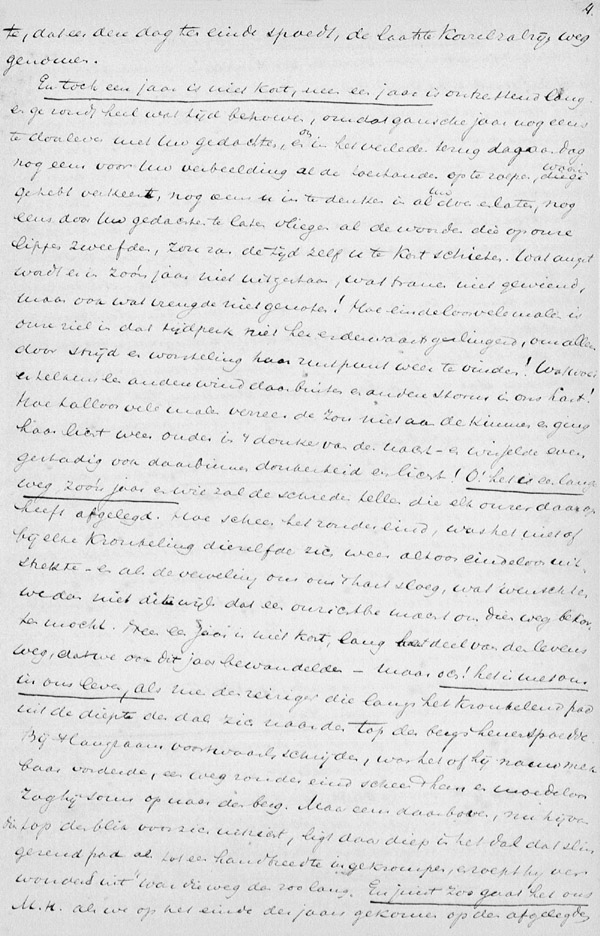 4.
te, dat een deze dag ten einde spoedt, de laatste korrel zal zijn weg
genomen.
En toch een jaar is niet kort, neen een jaar is ontzettend lang.
er zoudt heel wat tijd behoeven, om dat gansche jaar nog eens
te doorleven met Uw gedachten, en om in het verleden terug dag aan dag
nog eens voor Uw verbeelding al de toestanden op te roepen, waarin
gehebt verkeert, nog eens u in te denken in al Uw doen en laten, nog
eens door Uw gedachten te laten vliegen al de woorden die op onze
lippen zweefden, zou van de tijd zelf u te kort schieten. Wat angst
wordt er in zoo'n jaar niet uitgestaan, wat tranen niet geweend,
maar ook wat vreugde niet genoten! Hoe eindeloos vele malen is
onze ziel in dat tijdperk niet her en derwaarts geslingerd, om alleen
door strijd en worsteling haar rustpunt weer te vinden! Wat woei
er telkens een anderen wind daarbinnen en anderen storm in ons hart!
Hoe talloos vele malen verrees de zon niet aan de kimmen en ging
haar licht weer onder in 't donker van den nacht - en wisselde even
gestadig ook daarbinnen donkerheid en licht! O! het is een lange
weg zoo'n jaar en wie zal de schreden tellen die elk onzer daarop
heeft afgelegd. Hoe scheen het zonder eind, was het niet of
bij elke kronkeling dezelfde zich weer altoos eindeloos uit
strekte - en als de verveling ons om 't hart sloeg, wat wenschten
we dan niet dikwijls dat een onzichtbre macht ons dien weg bekor
ten mocht. Neen een jaar is niet kort, lang is het deel van den levens
weg, dat we ook dit jaar bewandelden - maar och! het is met ons
in ons leven, als met den reiziger die langs het kronkelend pad
uit de diepte der dal zich naar den top des bergs henen spoedde.
Bij 't langzaam voorwaarts schrijden, was het of hij nauw merk
baar vorderde, een weg zonder eind scheen 't hem, en moedeloos
zag hij soms op naar den berg. Maar eens daarboven, nu hij van
den top den blik voor zich uit richt, ligt daar diep in het dal dat slin
gerend pad als tot een handbreedte ingekrompen, en roept hij ver
wonderd uit: was die weg dan zoo lang. En juist zoo gaat het ons
M.H. als we op het einde des jaars gekomen op den afgelegden